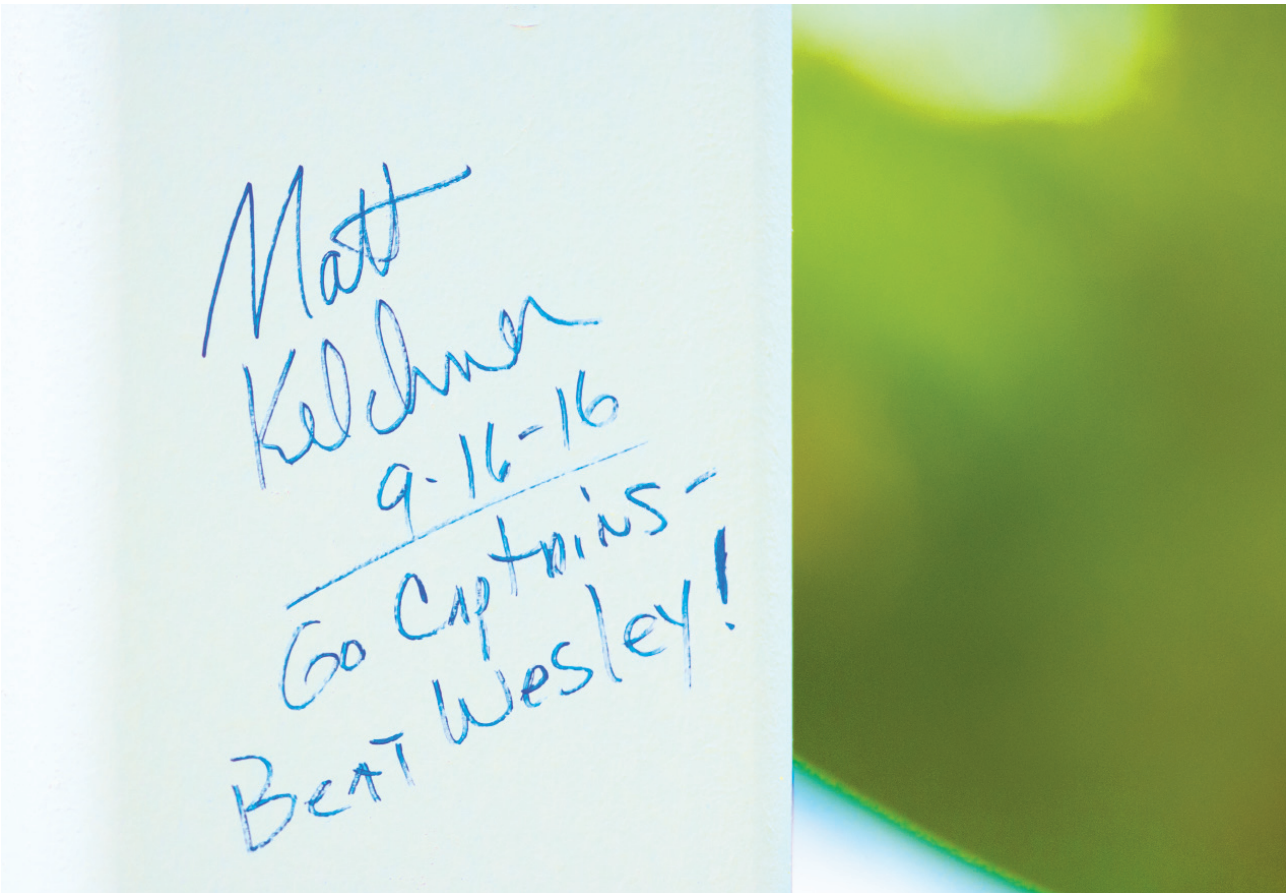 Matt
Kelchner
9-16-16
Go Captains-
Beat Wesley!